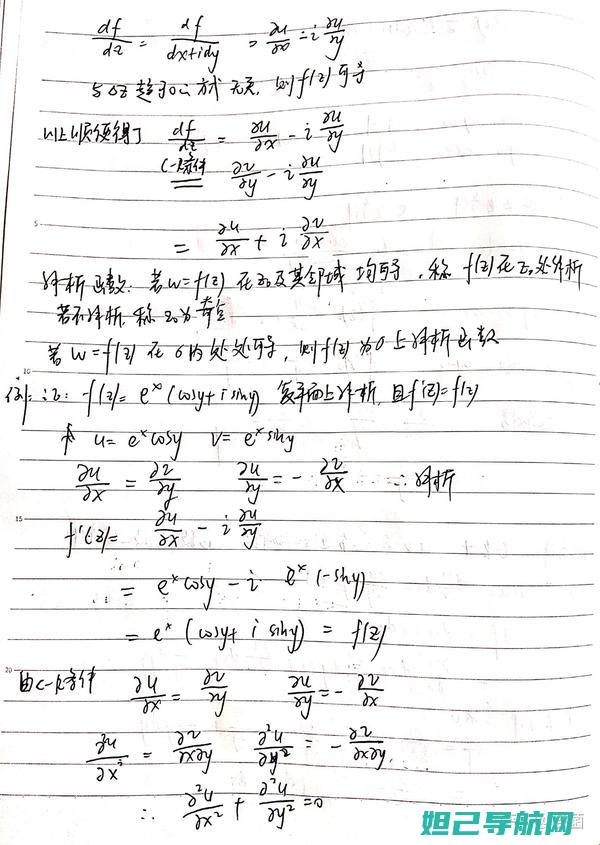 df/dz = df/dx+idy = ∂u/∂x - i ∂u/∂y
与Δz趋于0方式无关, 则f(z)可导
df/dz = ∂u/∂x - i ∂u/∂y
C-R条件 ∂v/∂y - i ∂u/∂y
5
= ∂u/∂x + i ∂v/∂x
解析函数: 若w=f(z) 在z₀及其邻域均可导, 称 f(z)在z₀处解析
若不解析, 称z₀为奇点
若 w=f(z) 在σ内处处可导, 则f(z)为σ上解析函数
10
例: 证: f(z)= eˣ(cosy+isiny) 复平面上解析, 且f'(z)=f(z)
u= eˣcosy v= eˣsiny
∂u/∂x = ∂v/∂y ∂u/∂y = -∂v/∂x ∴解析
15
f'(z)= ∂u/∂x - i ∂u/∂y
= eˣcosy - i eˣ(-siny)
= eˣ(cosy+ i siny) = f(z)
20
由C-R条件 ∂u/∂x = ∂v/∂y ∂u/∂y = -∂v/∂x
∂²u/∂x² = ∂v/∂x∂y ∂²u/∂y² = -∂v/∂x∂y
∴ ∂²u/∂x² + ∂²u/∂y² =0
妲己导航网